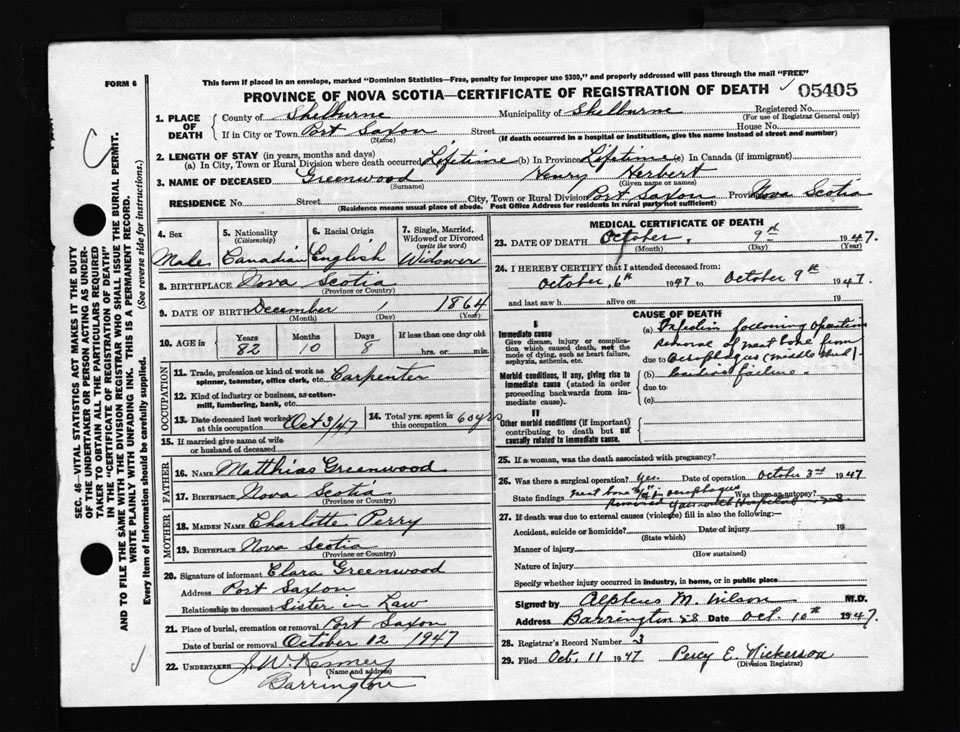 This form if placed in an envelope, marked "Dominion Statistics—Free, penalty for improper use $300," and properly addressed will pass through the mail "FREE"
FORM 6
PROVINCE OF NOVA SCOTIA—CERTIFICATE OF REGISTRATION OF DEATH 05405
SEC. 46— VITAL STATISTICS ACT MAKES IT THE DUTY
OF THE UNDERTAKER OR PERSON ACTING AS UNDER-
TAKER TO OBTAIN ALL THE PARTICULARS REQUIRED
IN THE "CERTIFICATE OF REGISTRATION OF DEATH"
AND TO FILE THE SAME WITH THE DIVISION REGISTRAR WHO SHALL ISSUE THE BURIAL PERMIT.
WRITE PLAINLY WITH UNFADING INK. THIS IS A PERMANENT RECORD.
Every item of Information should be carefully supplied. (See reverse side for instructions.)
1. PLACE OF DEATH
County of Shelburne Municipality of Shelburne Registered No.
(For use of Registrar General only)
If in City or Town Port Saxon Street House No.
(Name) (If death occurred in a hospital or institution, give the name instead of street and number)
2. LENGTH OF STAY (in years, months and days)
(a) In City, Town or Rural Division where death occurred Lifetime (b) In Province Lifetime (c) In Canada (if immigrant)
3. NAME OF DECEASED Greenwood Henry Herbert
(Surname) (Given name or names)
RESIDENCE No. Street City, Town or Rural Division Port Saxon Province Nova Scotia
(Residence means usual place of abode. Post Office Address for residents in rural parts not sufficient)
4. Sex
Male
5. Nationality
(Citizenship)
Canadian
6. Racial Origin
English
7. Single, Married,
Widowed or Divorced
(write the word)
Widower
8. BIRTHPLACE Nova Scotia
(Province or Country)
9. DATE OF BIRTH December 1 1864
(Month) (Day) (Year)
10. AGE in
Years Months Days If less than one day old
82 10 8 hrs. or min.
OCCUPATION
11. Trade, profession or kind of work as
spinner, teamster, office clerk, etc. Carpenter
12. Kind of industry or business, as cotton-
mill, lumbering, bank, etc.
13. Date deceased last worked
at this occupation Oct 3/47
14. Total yrs. spent in
this occupation 60 yrs
15. If married give name of wife
or husband of deceased
FATHER
16. NAME Matthias Greenwood
17. BIRTHPLACE Nova Scotia
(Province or Country)
MOTHER
18. MAIDEN NAME Charlotte Perry
19. BIRTHPLACE Nova Scotia
(Province or Country)
20. Signature of informant Clara Greenwood
Address Port Saxon
Relationship to deceased Sister in Law
21. Place of burial, cremation or removal Port Saxon
Date of burial or removal October 12 1947
22. UNDERTAKER J. W. Kenney
(Name and address)
Barrington
MEDICAL CERTIFICATE OF DEATH
23. DATE OF DEATH October 9th 1947.
(Month) (Day) (Year)
24. I HEREBY CERTIFY that I attended deceased from:
October 6th 1947 to October 9th 1947
and last saw h alive on 19
CAUSE OF DEATH
I
Immediate cause
Give disease, injury or complica-
tion which caused death, not the
mode of dying, such as heart failure,
asphyxia, asthenia, etc.
(a) Infection following operation
removal of meat bone from
due to oesophagus (middle third)
Morbid conditions, if any, giving rise to
immediate cause (stated in order
proceeding backwards from im-
mediate cause).
(b) Cardiac failure.
due to
(c)
II
Other morbid conditions (if important)
contributing to death but not
causally related to immediate cause.
25. If a woman, was the death associated with pregnancy?
26. Was there a surgical operation? Yes. Date of operation October 3rd 1947
State findings meat bone in oesophagus Was there an autopsy?
removed Yarmouth Hospital
27. If death was due to external causes (violence) fill in also the following:—
Accident, suicide or homicide? Date of injury 19
(State which)
Manner of injury
(How sustained)
Nature of injury
Specify whether injury occurred in industry, in home, or in public place
Signed by Alpheus M. Wilson M.D.
Address Barrington Date Oct. 10th 1947.
28. Registrar's Record Number 3
29. Filed Oct. 11 1947 Percy E. Nickerson
(Division Registrar)